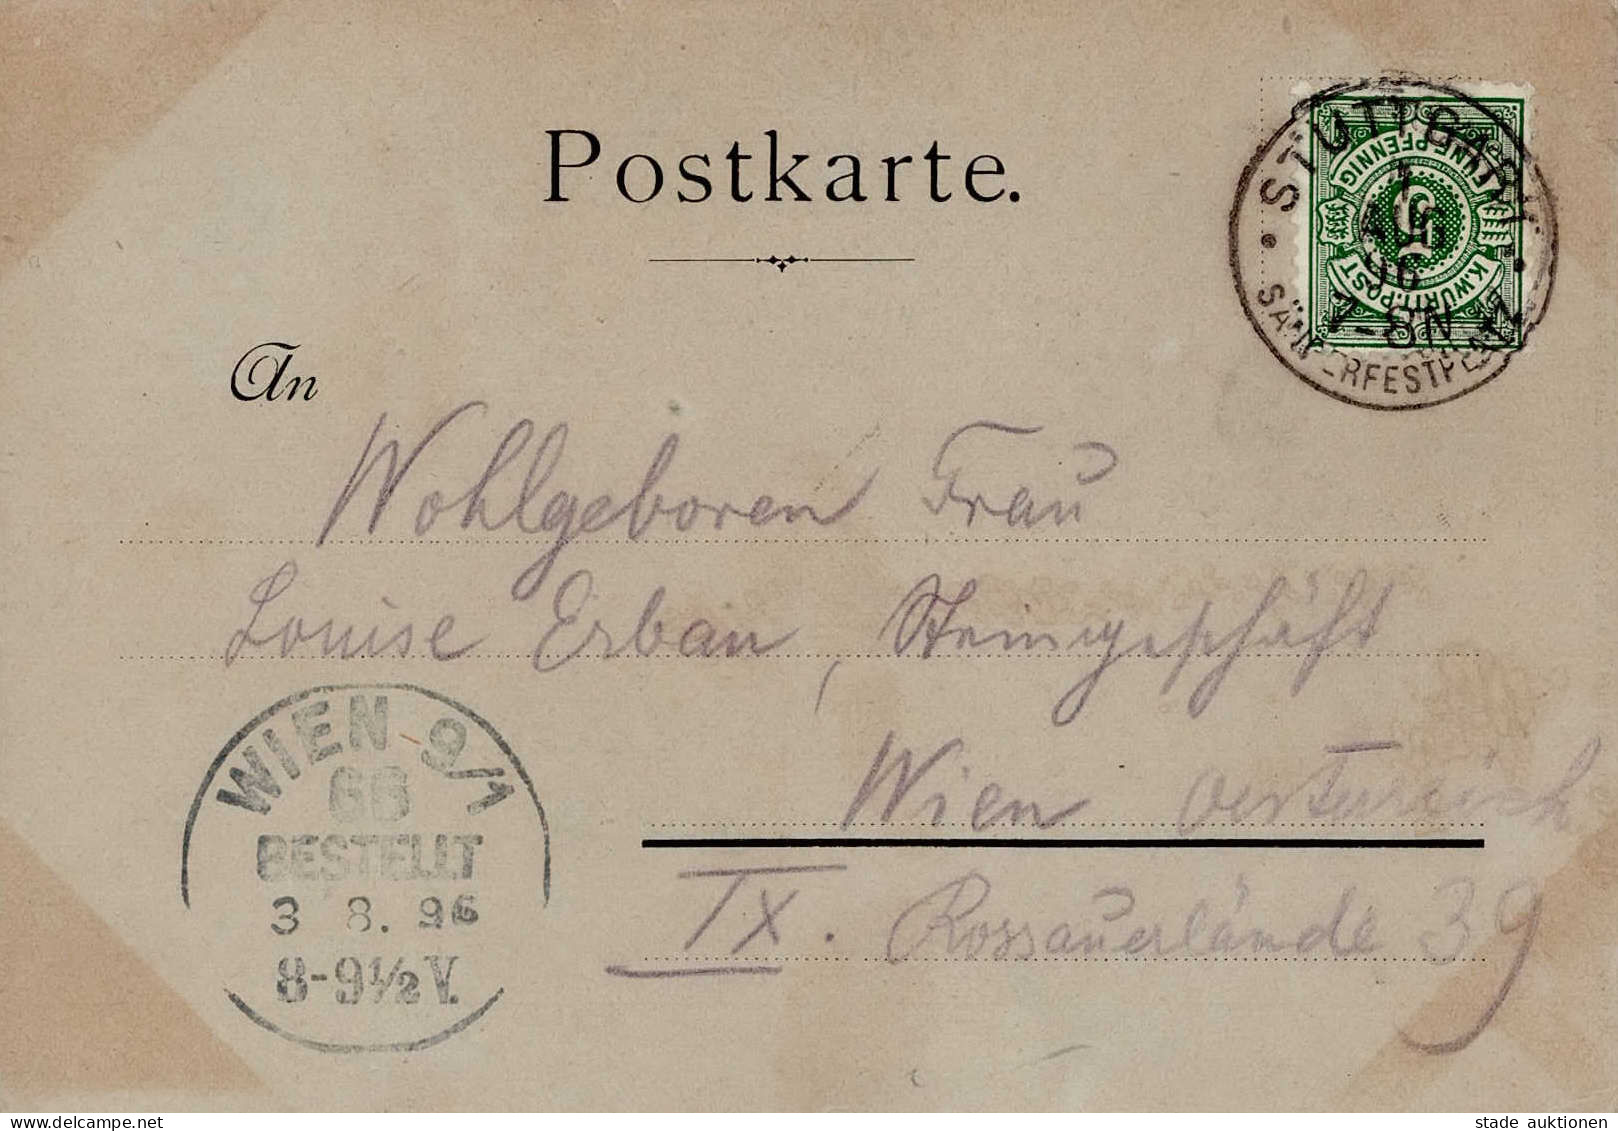 Postkarte.
STUTTGART
1
AUG
96
7-8N
SÄNGERFESTPLATZ
FÜNF PFENNIG
5
K.WÜRTT.POST
An
Wohlgeboren Frau
Louise Erban, Steingeschäft
Wien Oesterreich
IX. Rossauerlände 39
WIEN 9/1
66
BESTELLT
3 8. 96
8-9½ V.
www.delcampe.net
stade auktionen